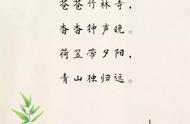 苍苍竹林寺，
杳杳钟声晚。
荷笠带夕阳，
青山独归远。